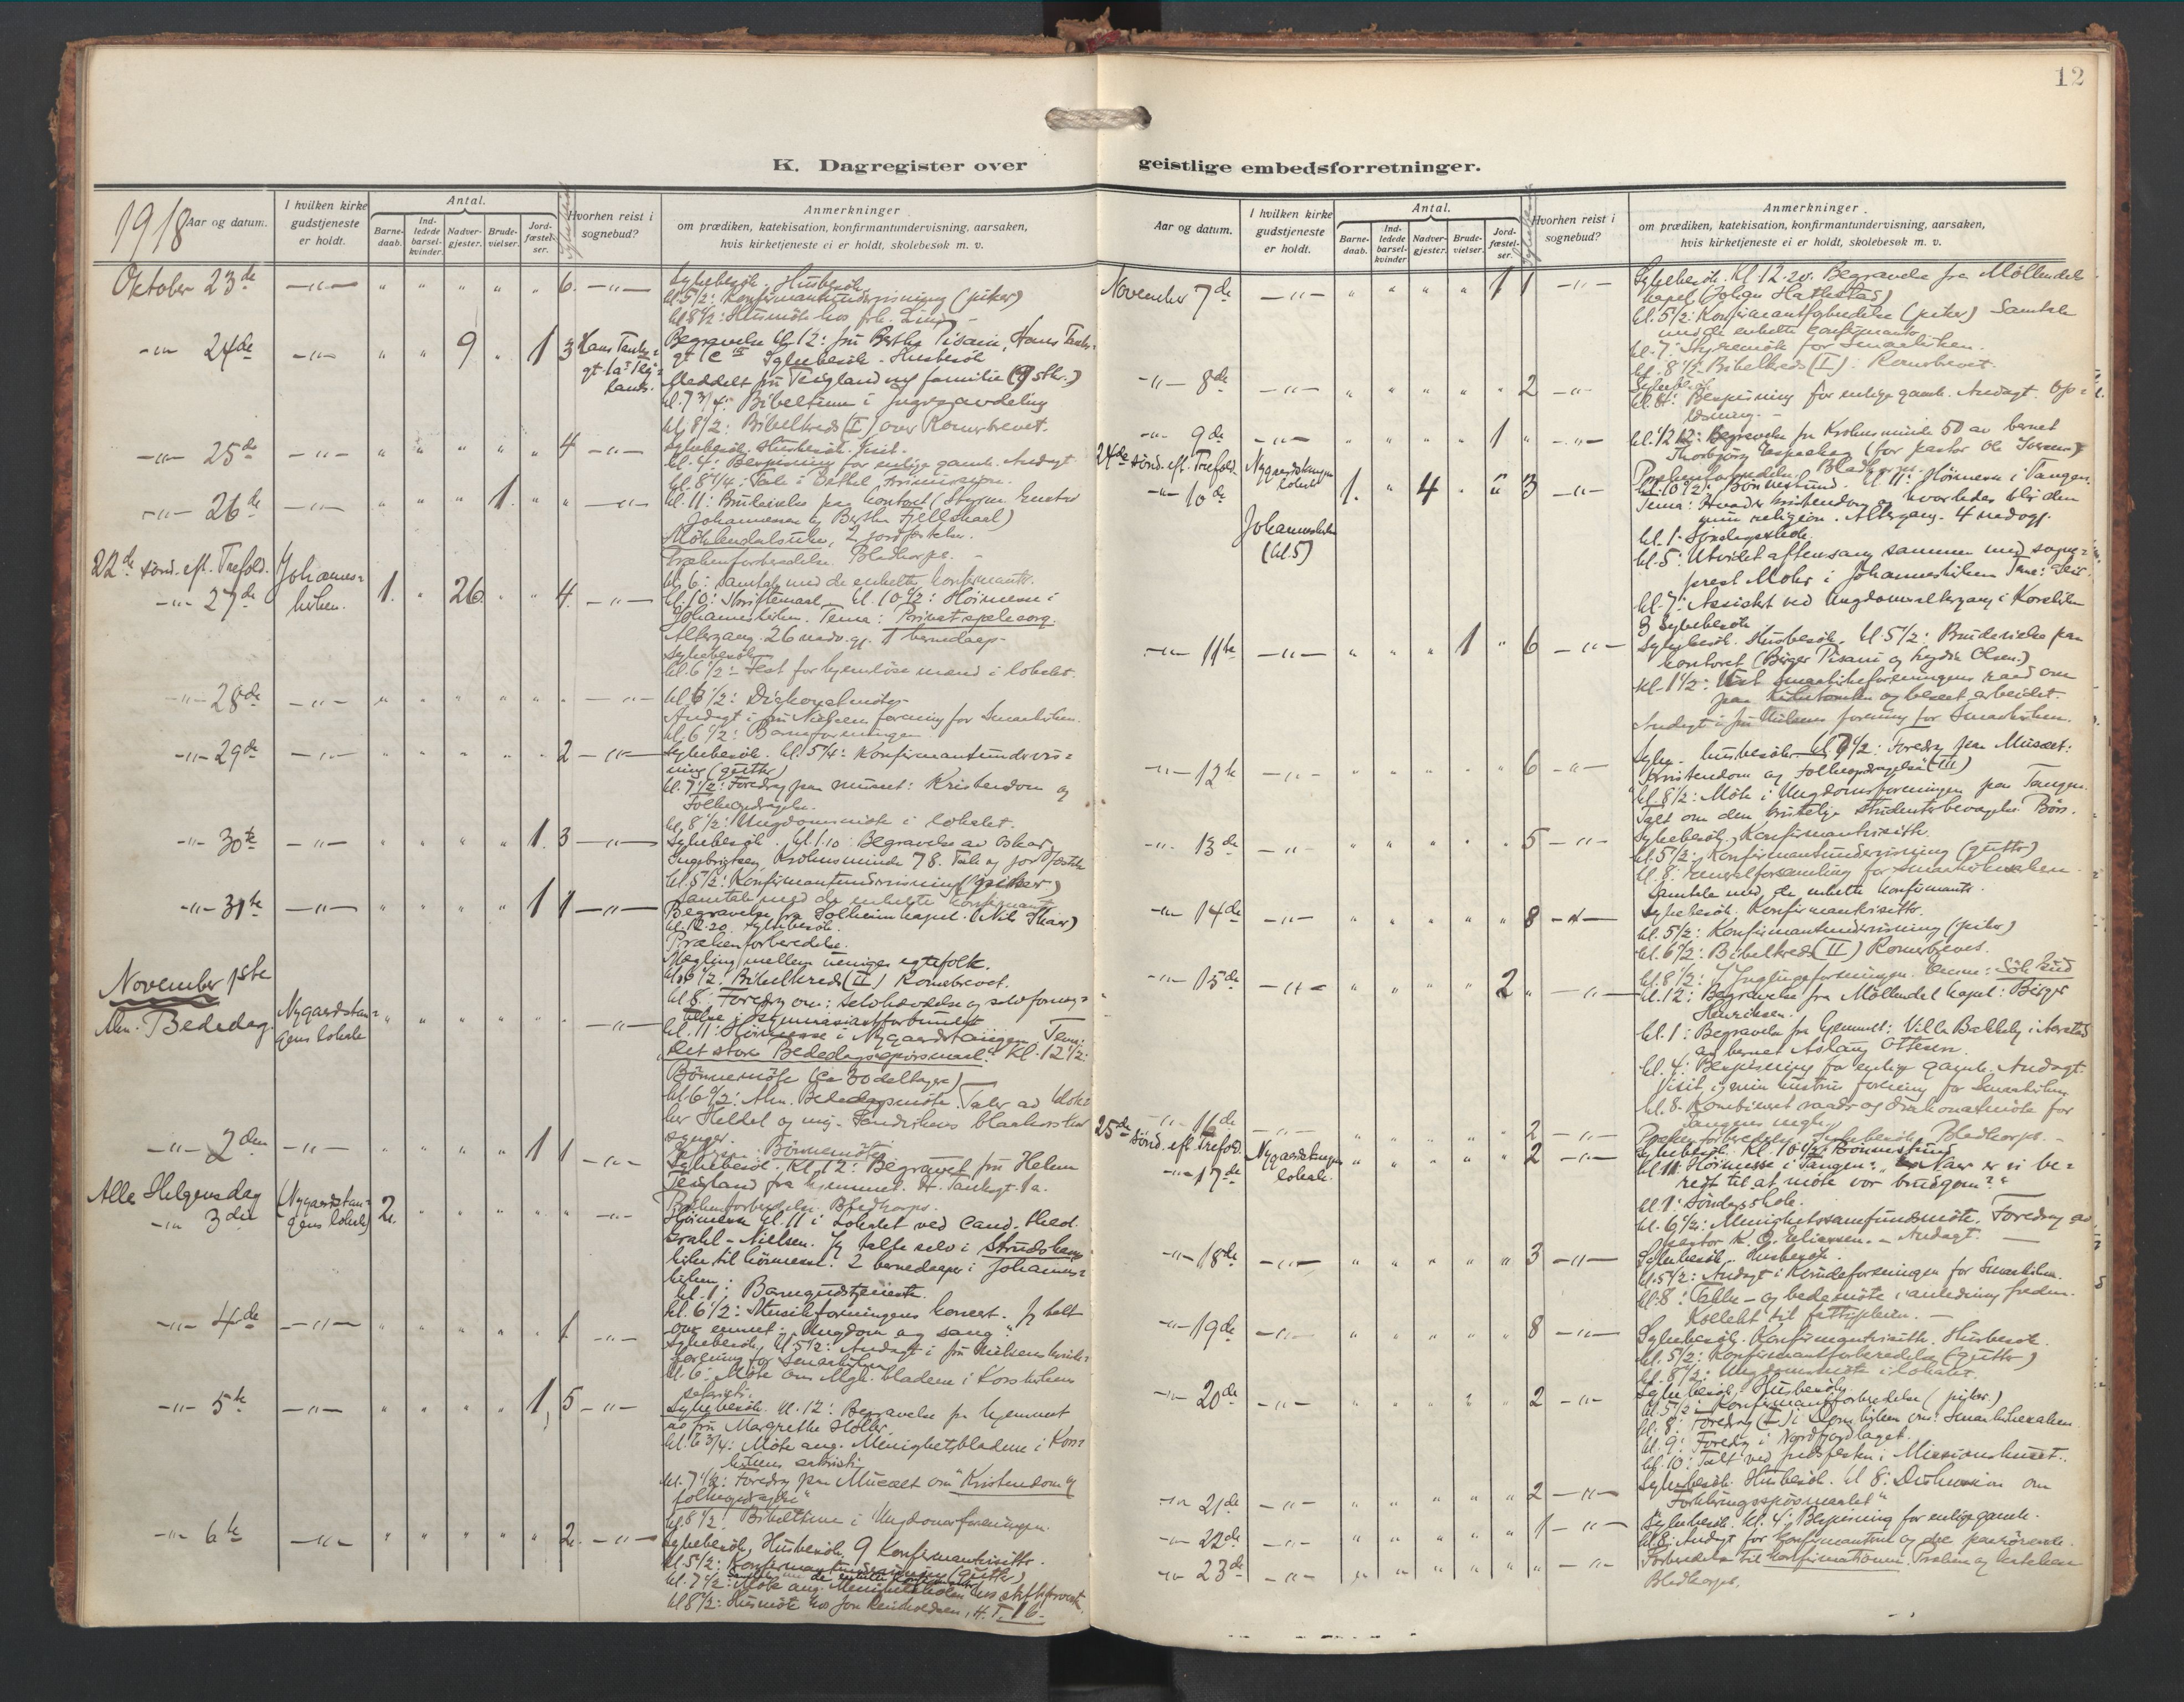 12
K. Dagregister over geistlige embedsforretninger.
1918
Aar og datum.
I hvilken kirke gudstjeneste er holdt.
Antal.
Barnedaab.
Indledede barselkvinder.
Nadvergjester.
Brudevielser.
Jordfæstelser.
Hvorhen reist i sognebud?
Anmerkninger
om prædiken, katekisation, konfirmantundervisning, aarsaken,
hvis kirketjeneste ei er holdt, skolebesøk m. v.
Oktober 23de 6.
Sykebesök. Husbesök.
kl. 5 1/2: Konfirmantundervisning (piker)
kl. 8 1/2: Husmöte hos frk.
24de 9 1 3
Begravelse kl. 12: fru Bertha Pisani, Hans
Sykebesök. Husbesök
Meddelt fru Teigland og familie (9 stk.)
kl. 7 3/4: Bibeltime i
kl. 8 1/2: Bibelkreds (I) over Romerbrevet.
25de 4
Sykebesök. Husbesök. Visit.
kl. 4: Bespisning for enlige gamle. Andagt
kl. 8 1/4: Tale i Bethel,
26de 1.
kl. 11: Brudevielse paa kontoret,
Johannessen og Bertha
2 jordfæstelser.
Prækenforberedelse. Bladkorps.
22de sönd. eft. Trefold.
27de Johanneskirken. 1. 26 4
kl. 6: samtale med de enkelte konfirmanter.
kl. 10: Skriftemaal. kl. 10 1/2: Höimesse i
Johanneskirken. Tema: Privat sjelesorg.
Altergang. 26 nadv. gj. 1 barnedaap.
Sykebesök
kl. 6 1/2: Fest for hjemlöse mænd i lokalet.
28de
Andagt i fru Nielsens forening for Smaakirken.
kl. 6 1/2: Barneforeningen.
29de 2
Sykebesök. kl. 5 1/4: Konfirmantundervisning (gutter)
kl. 7 1/2: Foredrag paa museet: Kristendom og
Folkeopdragelse.
kl. 8 1/2: Ungdomsmöte i lokalet.
30te 1. 3
Sykebesök. kl. 1.10: Begravelse av Oskar
Ingebrigtsen, Krohnsminde 78. Tale og jordfæstelse
kl. 5 1/2: Konfirmantundervisning (piker)
Samtale med de enkelte konfirmanter
31te 1 1
Begravelse fra Solheim kapel. (Nils Skar)
kl. 12.20. Sykebesök.
Prækenforberedelse.
Megling mellem uenige egtefolk.
kl. 6 1/2: Bibelkreds (II) Romerbrevet.
kl. 8: Foredrag om: selvhævdelse og selvfornegtelse i gymnasiastforbundet
November 1ste
Alm. Bededag. Nygaardstangens lokale
kl. 11: Höimesse i Nygaardstangen. Tema:
"Det store Bededagsspörsmaal." Kl. 12 1/2:
Bönnemöte (ca 30 deltagere)
kl. 6 1/2: Alm. Bededagsmöte. Taler av
Heldal og mig.
synger.
Bönnemöte
2den 1 1
Sykebesök. Kl. 12: Begravet fru Helene
Teigland fra hjemmet. H. Tanksgt. 1a.
Prækenforberedelse. Bladkorps.
Alle Helgensdag
3die (Nygaardstangens lokale) 2.
Höimesse kl. 11 i Lokalet ved Cand. theol.
Grahl-Nielsen. Jeg talte selv i Strudshavn
kirke til höimesse. 2 barnedaaper i Johanneskirken.
kl. 1: Barnegudstjeneste.
kl. 6 1/2: Musikforeningens koncert. Jeg talte
over emnet: "Ungdom og sang".
4de 1
Sykebesök. kl. 5 1/2: Andagt i fru Nielsens
forening for Smaakirken
kl. 6: Möte om Mgh. bladene i Korskirkens
sakristi.
5te 1, 5
Sykebesök. kl. 12: Begravelse fra hjemmet
av fru Margrethe Holler.
kl. 6 3/4: Möte ang. Menighetsbladene i Korskirkens sakristi
kl. 7 1/2: Foredrag paa Museet om "Kristendom og
folkeopdragelse"
kl. 8 1/2: Bibeltime i Ungdomsforeningen.
6te 2.
Sykebesök, Husbesök. 9 Konfirmantvisitter.
kl. 5 1/2: Konfirmantundervisning (gutter)
Samtale m. de enkelte konfirmanter
kl. 7 1/2: Möte ang. Menighetsbladene hos stiftsprovsten.
kl. 8 1/2: Husmöte hos
Aar og datum.
I hvilken kirke gudstjeneste er holdt.
Antal.
Barnedaab.
Indledede barselkvinder
Nadvergjester.
Brudevielser.
Jordfæstelser.
Hvorhen reist i sognebud?
Anmerkninger
om prædiken, katekisation, konfirmantundervisning, aarsaken,
hvis kirketjeneste ei er holdt, skolebesøk m. v.
November 7de 1 1
Sykebesök. Kl. 12.20. Begravelse fra Möllendals
kapel (Johan Hatlestad)
kl. 5 1/2: Konfirmantforberedelse (piker) Samtale
med de enkelte konfirmanter.
kl. 7: Styremöte for Smaakirken.
kl. 8 1/2: Bibelkreds (I): Romerbrevet.
8de 2
Sykebesök
kl. 4: Bespisning for enlige gamle. Andagt. Oplæsning.
9de 1
kl. 12: Begravelse fra Krohnsminde 50 av barnet
Thorbjörg Espeseth (for pastor Ole Iversen)
Prækenforberedelse. Bladkorps.
24de sönd. eft. Trefold.
10de Nygaardstangens lokale 1. 4 3
Johanneskirken (kl. 5)
kl. 10 1/2: Bönnestund. kl. 11: Höimesse i Tangen.
Tema: Hvad er kristendom og hvorledes blir den
min religion. Altergang. 4 nadvgj.
kl. 1: Söndagsskole.
kl. 5: Utvidet aftensang sammen med sogneprest Mohr i Johanneskirken
kl. 7: Assistert ved Ungdomsaltergang i Korskirken
3 Sykebesök
11te 1 6
Sykebesök. Husbesök. kl. 5 1/2: Brudevielse paa
kontoret (Birger Pisani og Lydia Olsen.)
kl. 1 1/2: Vist smaakirkeforeningens raad om
paa kirketomten og beseet arbeidet.
Andagt i fru Nielsens forening for Smaakirken.
12te 6
Syke-, husbesök. kl. 7 1/2: Foredrag paa Museet:
Kristendom og folkeopdragelse (III)
kl. 8 1/2: Möte i Ungdomsforeningen paa Tangen.
Talt om den kristelige studenterbevægelse. Bön.
13de 5
Sykebesök, Konfirmantvisitt.
kl. 5 1/2: Konfirmantundervisning (gutter)
kl. 8: Generalforsamling for Smaakirkesaken.
Samtale med de enkelte konfirmanter.
14de 8
Sykebesök. Konfirmantvisitter.
kl. 5 1/2: Konfirmantundervisning (piker)
kl. 6 1/2: Bibelkreds (II) Romerbrevet.
kl. 8 1/2: Ynglingeforeningen. Emne: Sök Gud
15de 2
kl. 12: Begravelse fra Möllendal kapel: Birger
Henriksen.
kl. 1: Begravelse fra hjemmet: Villa Bakkely i Aarstad
av barnet Aslaug Ottesen.
kl. 4: Bespisning for enlige gamle. Andagt.
Visit i min hustrus forening for Smaakirken
kl. 8. Kombineret raads og diakonatmöte for
Tangens mgh.
16de 2
Prækenforberedelse. Sykebesök. Bladkorps.
25de sönd. eft. Trefold.
17de Nygaardstangens lokale. 2
Sykebesök. Kl. 10 1/2: Bönnestund
kl. 11: Höimesse i Tangen: "Naar er vi beredt til at möte vor brudgom?"
kl. 1: Söndagsskole.
kl. 6 1/2: Menighetssamfundsmöte. Foredrag av
pastor K. O. Eliassen. Andagt.
18de 3
Sykebesök. Husbesök.
kl. 5 1/2: Andagt i Kvindeforeningen for Smaakirken.
kl. 8: Takke- og bedemöte i anledning freden.
Kollekt til fattigpleien.
19de 8
Sykebesök. Konfirmantvisitt. Husbesök.
kl. 5 1/2: Konfirmantforberedelse (gutter)
kl. 8 1/2: Ungdomsmöte i lokalet.
20de 2
Sykebesök, Husbesök.
kl. 5 1/2: Konfirmantforberedelse (piker.)
kl. 8: Foredrag (I) i Domkirken om: Smaakirkesaken
kl. 9: Foredrag i Nordfjordlaget.
kl. 10: Talt ved fredsfesten i Missionshuset.
21de 2
Sykebesök. Husbesök. kl. 8: Diskussion om
"Forklaringsspörsmaalet"
22de 1
Sykebesök. kl. 4: Bespisning for enlige gamle.
kl. 8: Andagt for konfirmanterne og dere paarörende.
23de
Forberedelse til konfirmationen. Præken og katekese
Bladkorps.